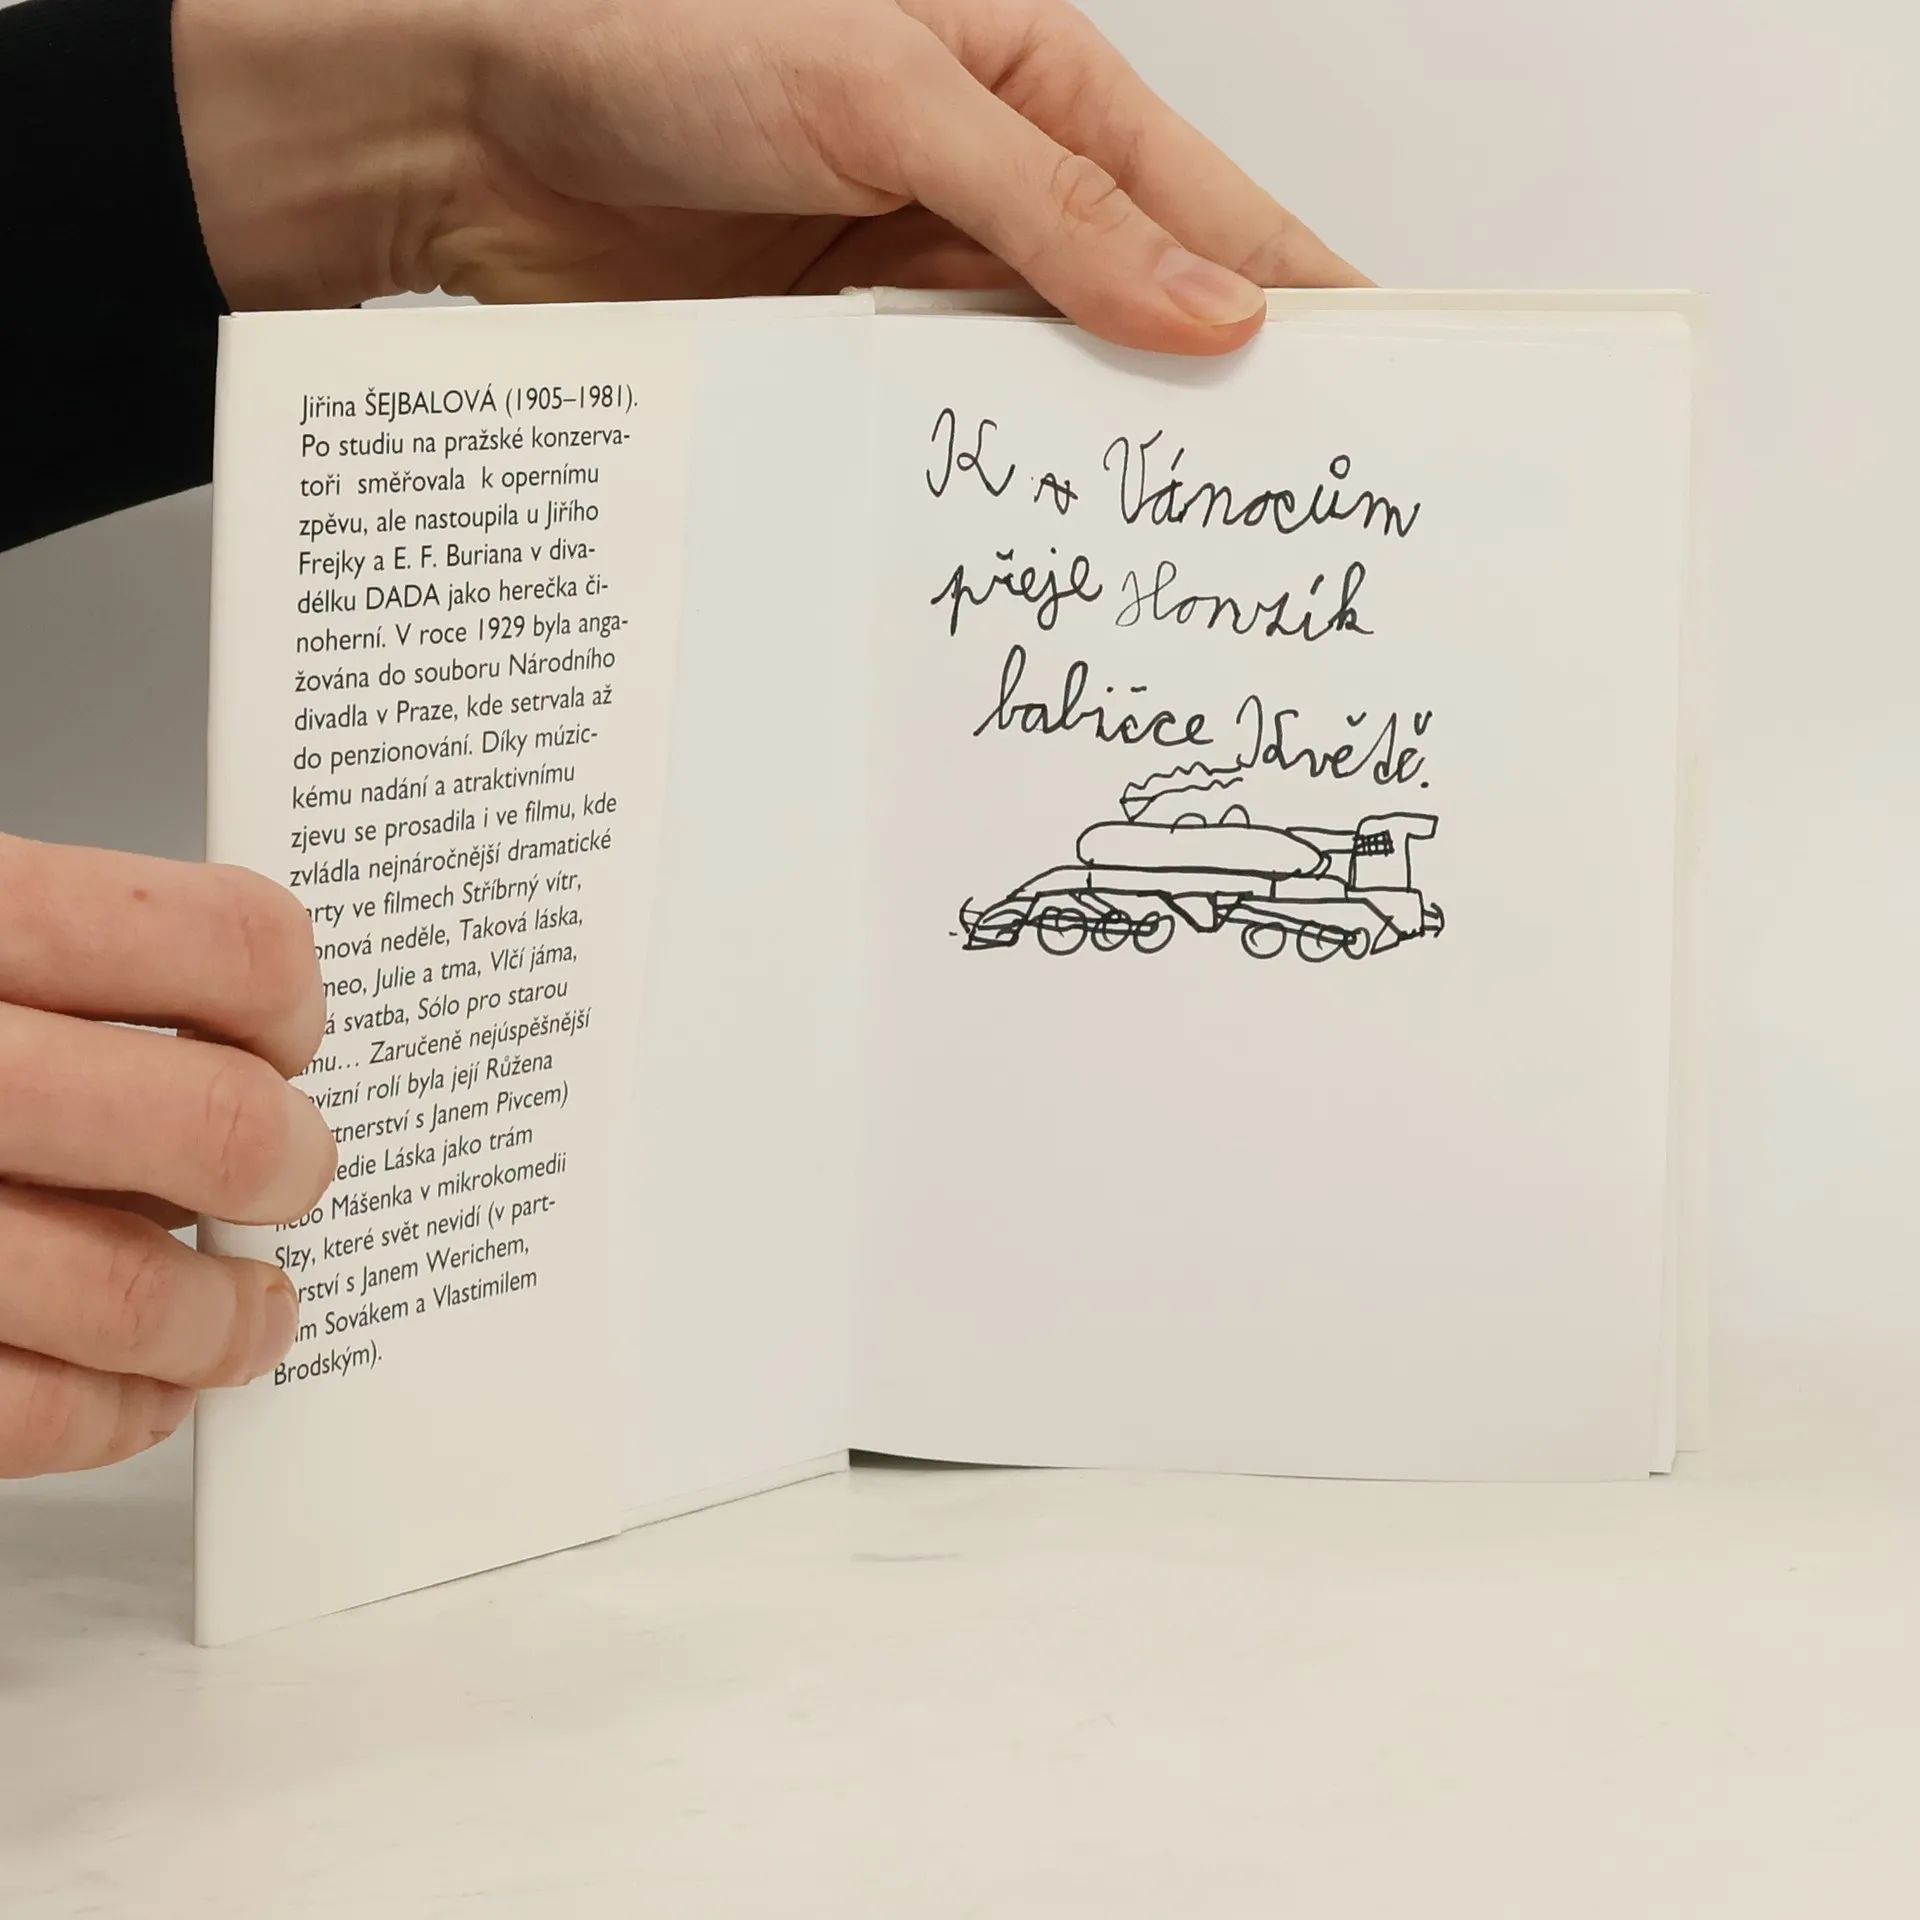 Jiřina ŠEJBALOVÁ (1905–1981).
Po studiu na pražské konzerva-
toři směřovala k opernímu
zpěvu, ale nastoupila u Jiřího
Frejky a E. F. Buriana v diva-
délku DADA jako herečka či-
noherní. V roce 1929 byla anga-
žována do souboru Národního
divadla v Praze, kde setrvala až
do penzionování. Díky múzic-
kému nadání a atraktivnímu
zjevu se prosadila i ve filmu, kde
zvládla nejnáročnější dramatické
rty ve filmech Stříbrný vítr,
onová neděle, Taková láska,
meo, Julie a tma, Vlčí jáma,
á svatba, Sólo pro starou
mu... Zaručeně nejúspěšnější
vizní rolí byla její Růžena
tnerství s Janem Pivcem)
edie Láska jako trám
nebo Mášenka v mikrokomedii
Slzy, které svět nevidí (v part-
rství s Janem Werichem,
m Sovákem a Vlastimilem
Brodským).
K Vánocům
přeje Honzík
babičce Květě.